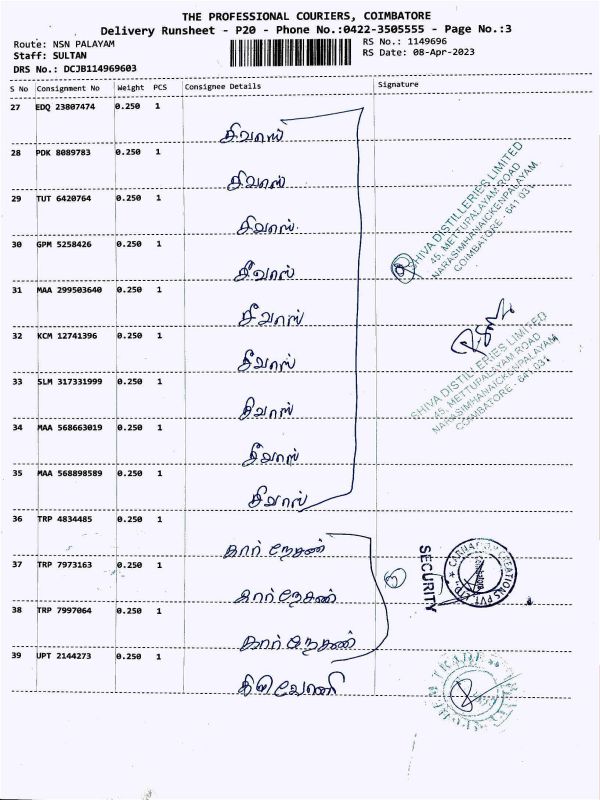 THE PROFESSIONAL COURIERS, COIMBATORE
Delivery Runsheet - P20 - Phone No.:0422-3505555 - Page No.:3
Route: NSN PALAYAM
Staff: SULTAN
DRS No.: DCJB114969603
RS No.: 1149696
RS Date: 08-Apr-2023
S No Consignment No Weight PCS Consignee Details Signature
27 EDQ 23807474 0.250 1
சிவாஸ்
28 PDK 8089783 0.250 1
சிவாஸ்
29 TUT 6420764 0.250 1
சிவாஸ்
30 GPM 5258426 0.250 1
சீவாஸ்
31 MAA 299503640 0.250 1
சீவாஸ்
32 KCM 12741396 0.250 1
சீவாஸ்
33 SLM 317331999 0.250 1
சிவாஸ்
34 MAA 568663019 0.250 1
சீவாஸ்
35 MAA 568898589 0.250 1
சீவாஸ்
36 TRP 4834485 0.250 1
கார்நேசன்
37 TRP 7973163 0.250 1
கார்நேசன்
38 TRP 7997064 0.250 1
கார்நேசன்
39 UPT 2144273 0.250 1
SHIVA DISTILLERIES LIMITED
45, METTUPALAYAM ROAD
NARASIMHANAICKENPALAYAM
COIMBATORE - 641 031
SHIVA DISTILLERIES LIMITED
45, METTUPALAYAM ROAD
NARASIMHANAICKENPALAYAM
COIMBATORE - 641 031
9
3
SECURITY
CARNATION CREATIONS PVT LTD